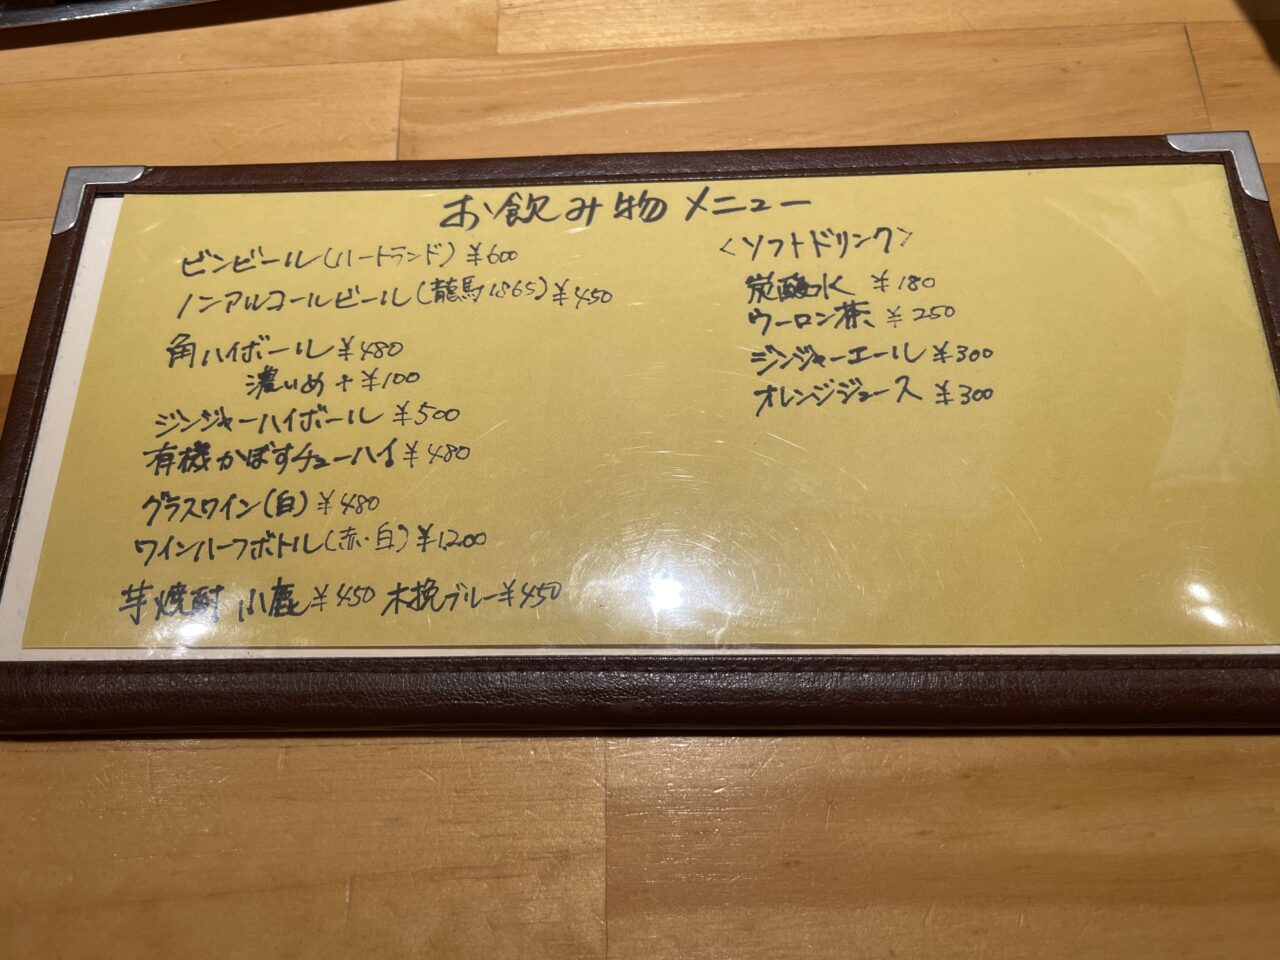 お飲み物メニュー
ビンビール(ハートランド)¥600
ノンアルコールビール(龍馬1865)¥450
角ハイボール¥480
濃いめ+¥100
ジンジャーハイボール¥500
有機かぼすチューハイ¥480
グラスワイン(白)¥480
ワインハーフボトル(赤・白)¥1,200
芋焼酎 小鹿¥450 木挽ブルー¥450
<ソフトドリンク>
炭酸水 ¥180
ウーロン茶 ¥250
ジンジャーエール ¥300
オレンジジュース ¥300